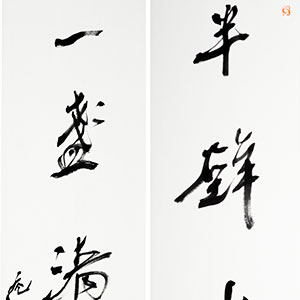 半壁
一盞清